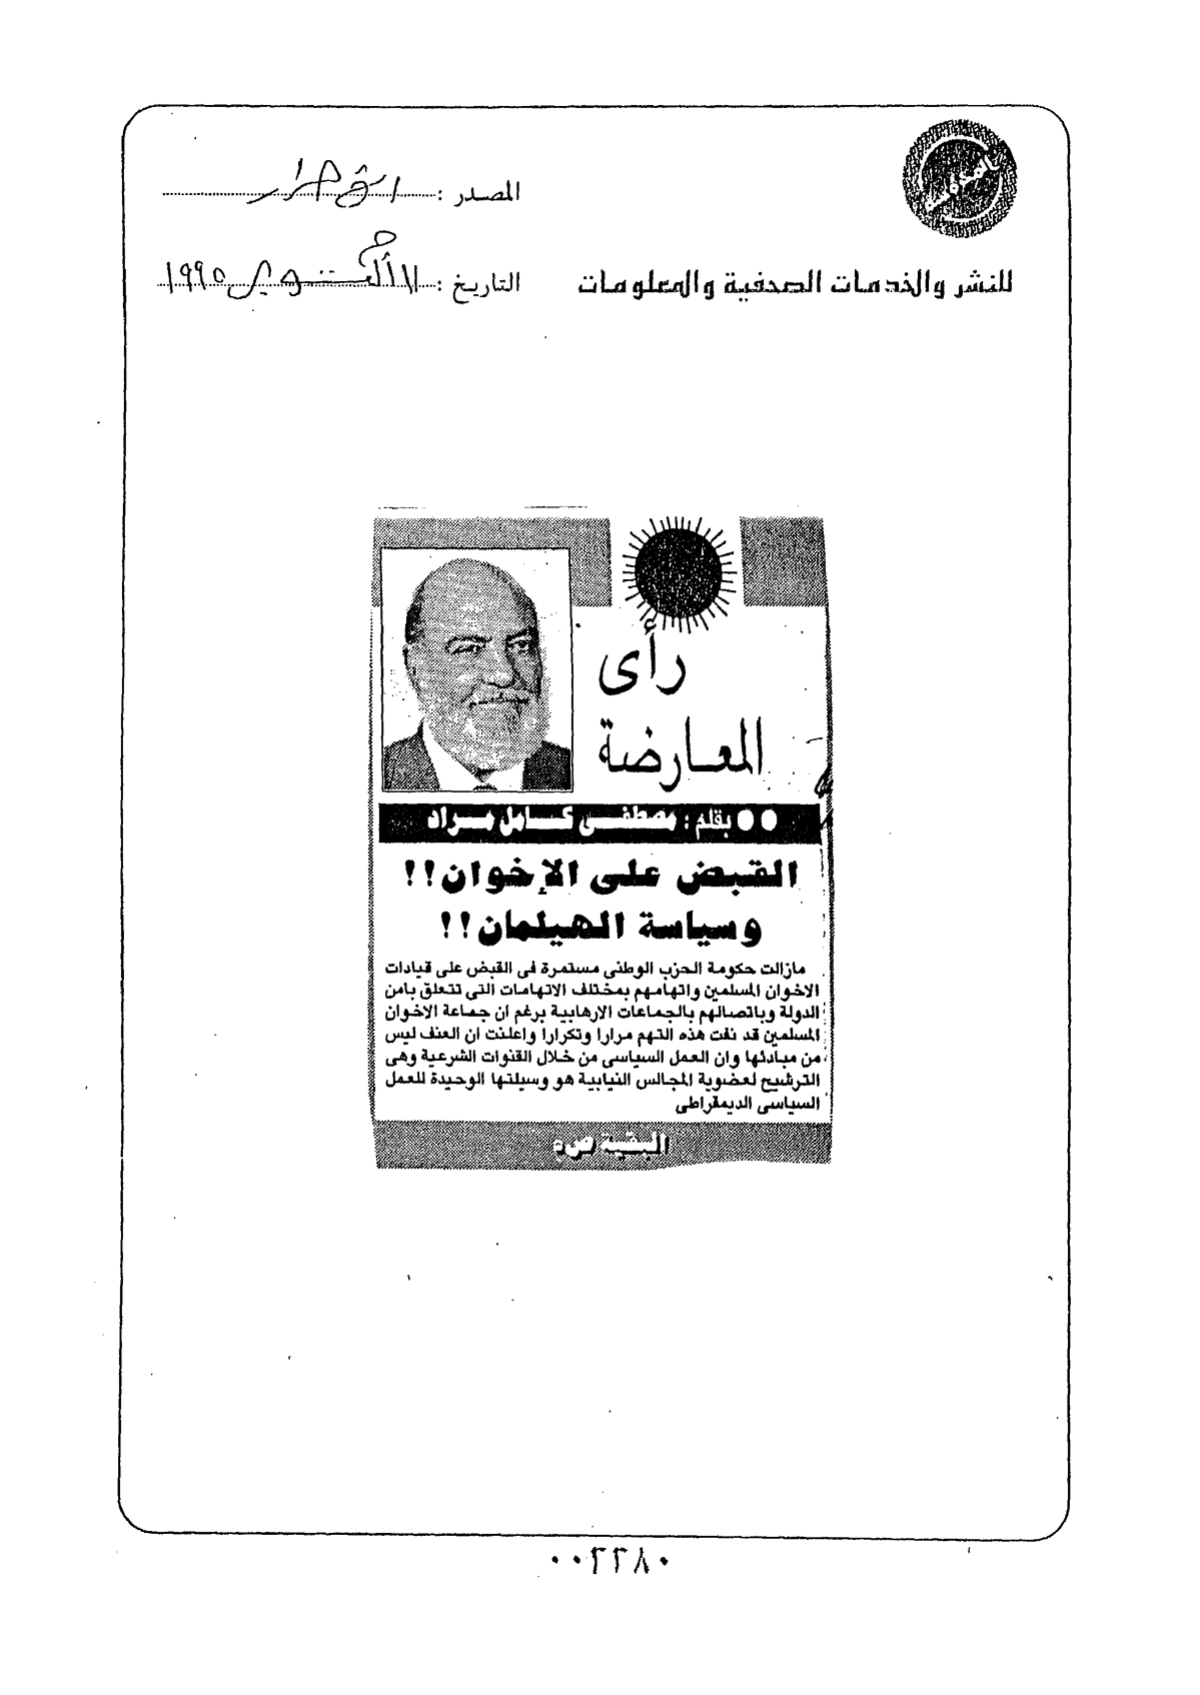 المصدر : الأحرار
للنشر والخدمات الصحفية والمعلومات
التاريخ : ١١ أكتوبر ١٩٩٥
رأى
المعارضة
●● بقلم : مصطفى كامل مراد
القبض على الإخوان !!
وسياسة الهيلمان !!
مازالت حكومة الحزب الوطنى مستمرة فى القبض على قيادات
الاخوان المسلمين واتهامهم بمختلف الاتهامات التى تتعلق بامن
الدولة وباتصالهم بالجماعات الارهابية برغم ان جماعة الاخوان
المسلمين قد نفت هذه التهم مرارا وتكرارا واعلنت ان العنف ليس
من مبادئها وان العمل السياسى من خلال القنوات الشرعية وهى
الترشيح لعضوية المجالس النيابية هو وسيلتها الوحيدة للعمل
السياسى الديمقراطى
البقية ص٥
٠٠٢٢٨٠